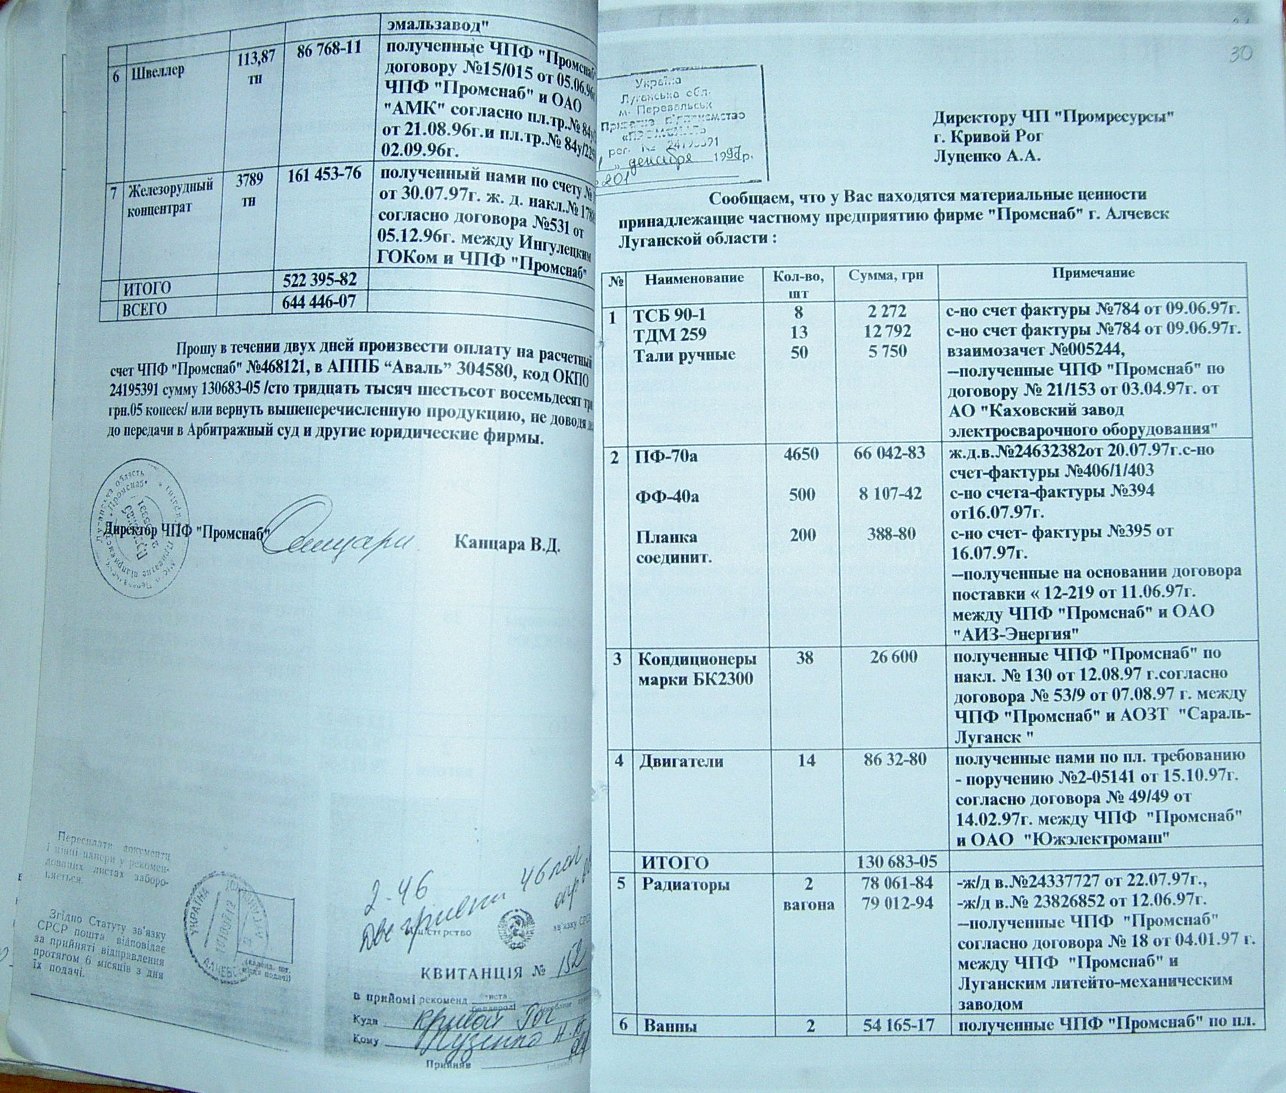 эмальзавод"
6 Швеллер 113,87 тн 86 768-11 полученные ЧПФ "Промснаб"
договору №15/015 от 05.06.96г
ЧПФ "Промснаб" и ОАО
"АМК" согласно пл.тр.№ 84у/
от 21.08.96г.и пл.тр.№ 84у/22
02.09.96г.
7 Железорудный концентрат 3789 тн 161 453-76 полученный нами по счету №
от 30.07.97г. ж. д. накл.№ 178
согласно договора №531 от
05.12.96г. между Ингулецким
ГОКом и ЧПФ "Промснаб"
ИТОГО 522 395-82
ВСЕГО 644 446-07
Прошу в течении двух дней произвести оплату на расчетный
счет ЧПФ "Промснаб" №468121, в АППБ “Аваль” 304580, код ОКПО
24195391 сумму 130683-05 /сто тридцать тысяч шестьсот восемьдесят три
грн.05 копеек/ или вернуть вышеперечисленную продукцию, не доводя
до передачи в Арбитражный суд и другие юридические фирмы.
Директор ЧПФ "Промснаб"
Канцара В.Д.
Пересилати документу
і інші папери у рекомен-
дованих листах заборо-
няється.
Згідно Статуту зв'язку
СРСР пошта відповідає
за прийняті відправлення
протягом 6 місяців з дня
їх подачі.
УКРАЇНА
2-46
Две гривни 46 коп
КВИТАНЦІЯ № 152
в прийомі рекоменд. листа
Куди Кривой Рог
Кому Луценко А.А.
Прийняв
30
Україна
Луганська обл.
м. Перевальськ
Приватне підприємство
«ПРОМСНАБ»
рег. № 24195391
" декабря 1997р.
201
Директору ЧП "Промресурсы"
г. Кривой Рог
Луценко А.А.
Сообщаем, что у Вас находятся материальные ценности
принадлежащие частному предприятию фирме "Промснаб" г. Алчевск
Луганской области :
№ Наименование Кол-во, шт Сумма, грн Примечание
1 ТСБ 90-1 8 2 272 с-но счет фактуры №784 от 09.06.97г.
ТДМ 259 13 12 792 с-но счет фактуры №784 от 09.06.97г.
Тали ручные 50 5 750 взаимозачет №005244,
--полученные ЧПФ "Промснаб" по
договору № 21/153 от 03.04.97г. от
АО "Каховский завод
электросварочного оборудования"
2 ПФ-70а 4650 66 042-83 ж.д.в.№24632382от 20.07.97г.с-но
счет-фактуры №406/1/403
ФФ-40а 500 8 107-42 с-но счета-фактуры №394
от16.07.97г.
Планка 200 388-80 с-но счет- фактуры №395 от
соединит. 16.07.97г.
--полученные на основании договора
поставки « 12-219 от 11.06.97г.
между ЧПФ "Промснаб" и ОАО
"АИЗ-Энергия"
3 Кондиционеры 38 26 600 полученные ЧПФ "Промснаб" по
марки БК2300 накл. № 130 от 12.08.97 г.согласно
договора № 53/9 от 07.08.97 г. между
ЧПФ "Промснаб" и АОЗТ "Сараль-
Луганск "
4 Двигатели 14 86 32-80 полученные нами по пл. требованию
- поручению №2-05141 от 15.10.97г.
согласно договора № 49/49 от
14.02.97г. между ЧПФ "Промснаб"
и ОАО "Южэлектромаш"
ИТОГО 130 683-05
5 Радиаторы 2 78 061-84 -ж/д в.№24337727 от 22.07.97г.,
вагона 79 012-94 -ж/д в.№ 23826852 от 12.06.97г.
--полученные ЧПФ "Промснаб"
согласно договора № 18 от 04.01.97 г.
между ЧПФ "Промснаб" и
Луганским литейто-механическим
заводом
6 Ванны 2 54 165-17 полученные ЧПФ "Промснаб" по пл.